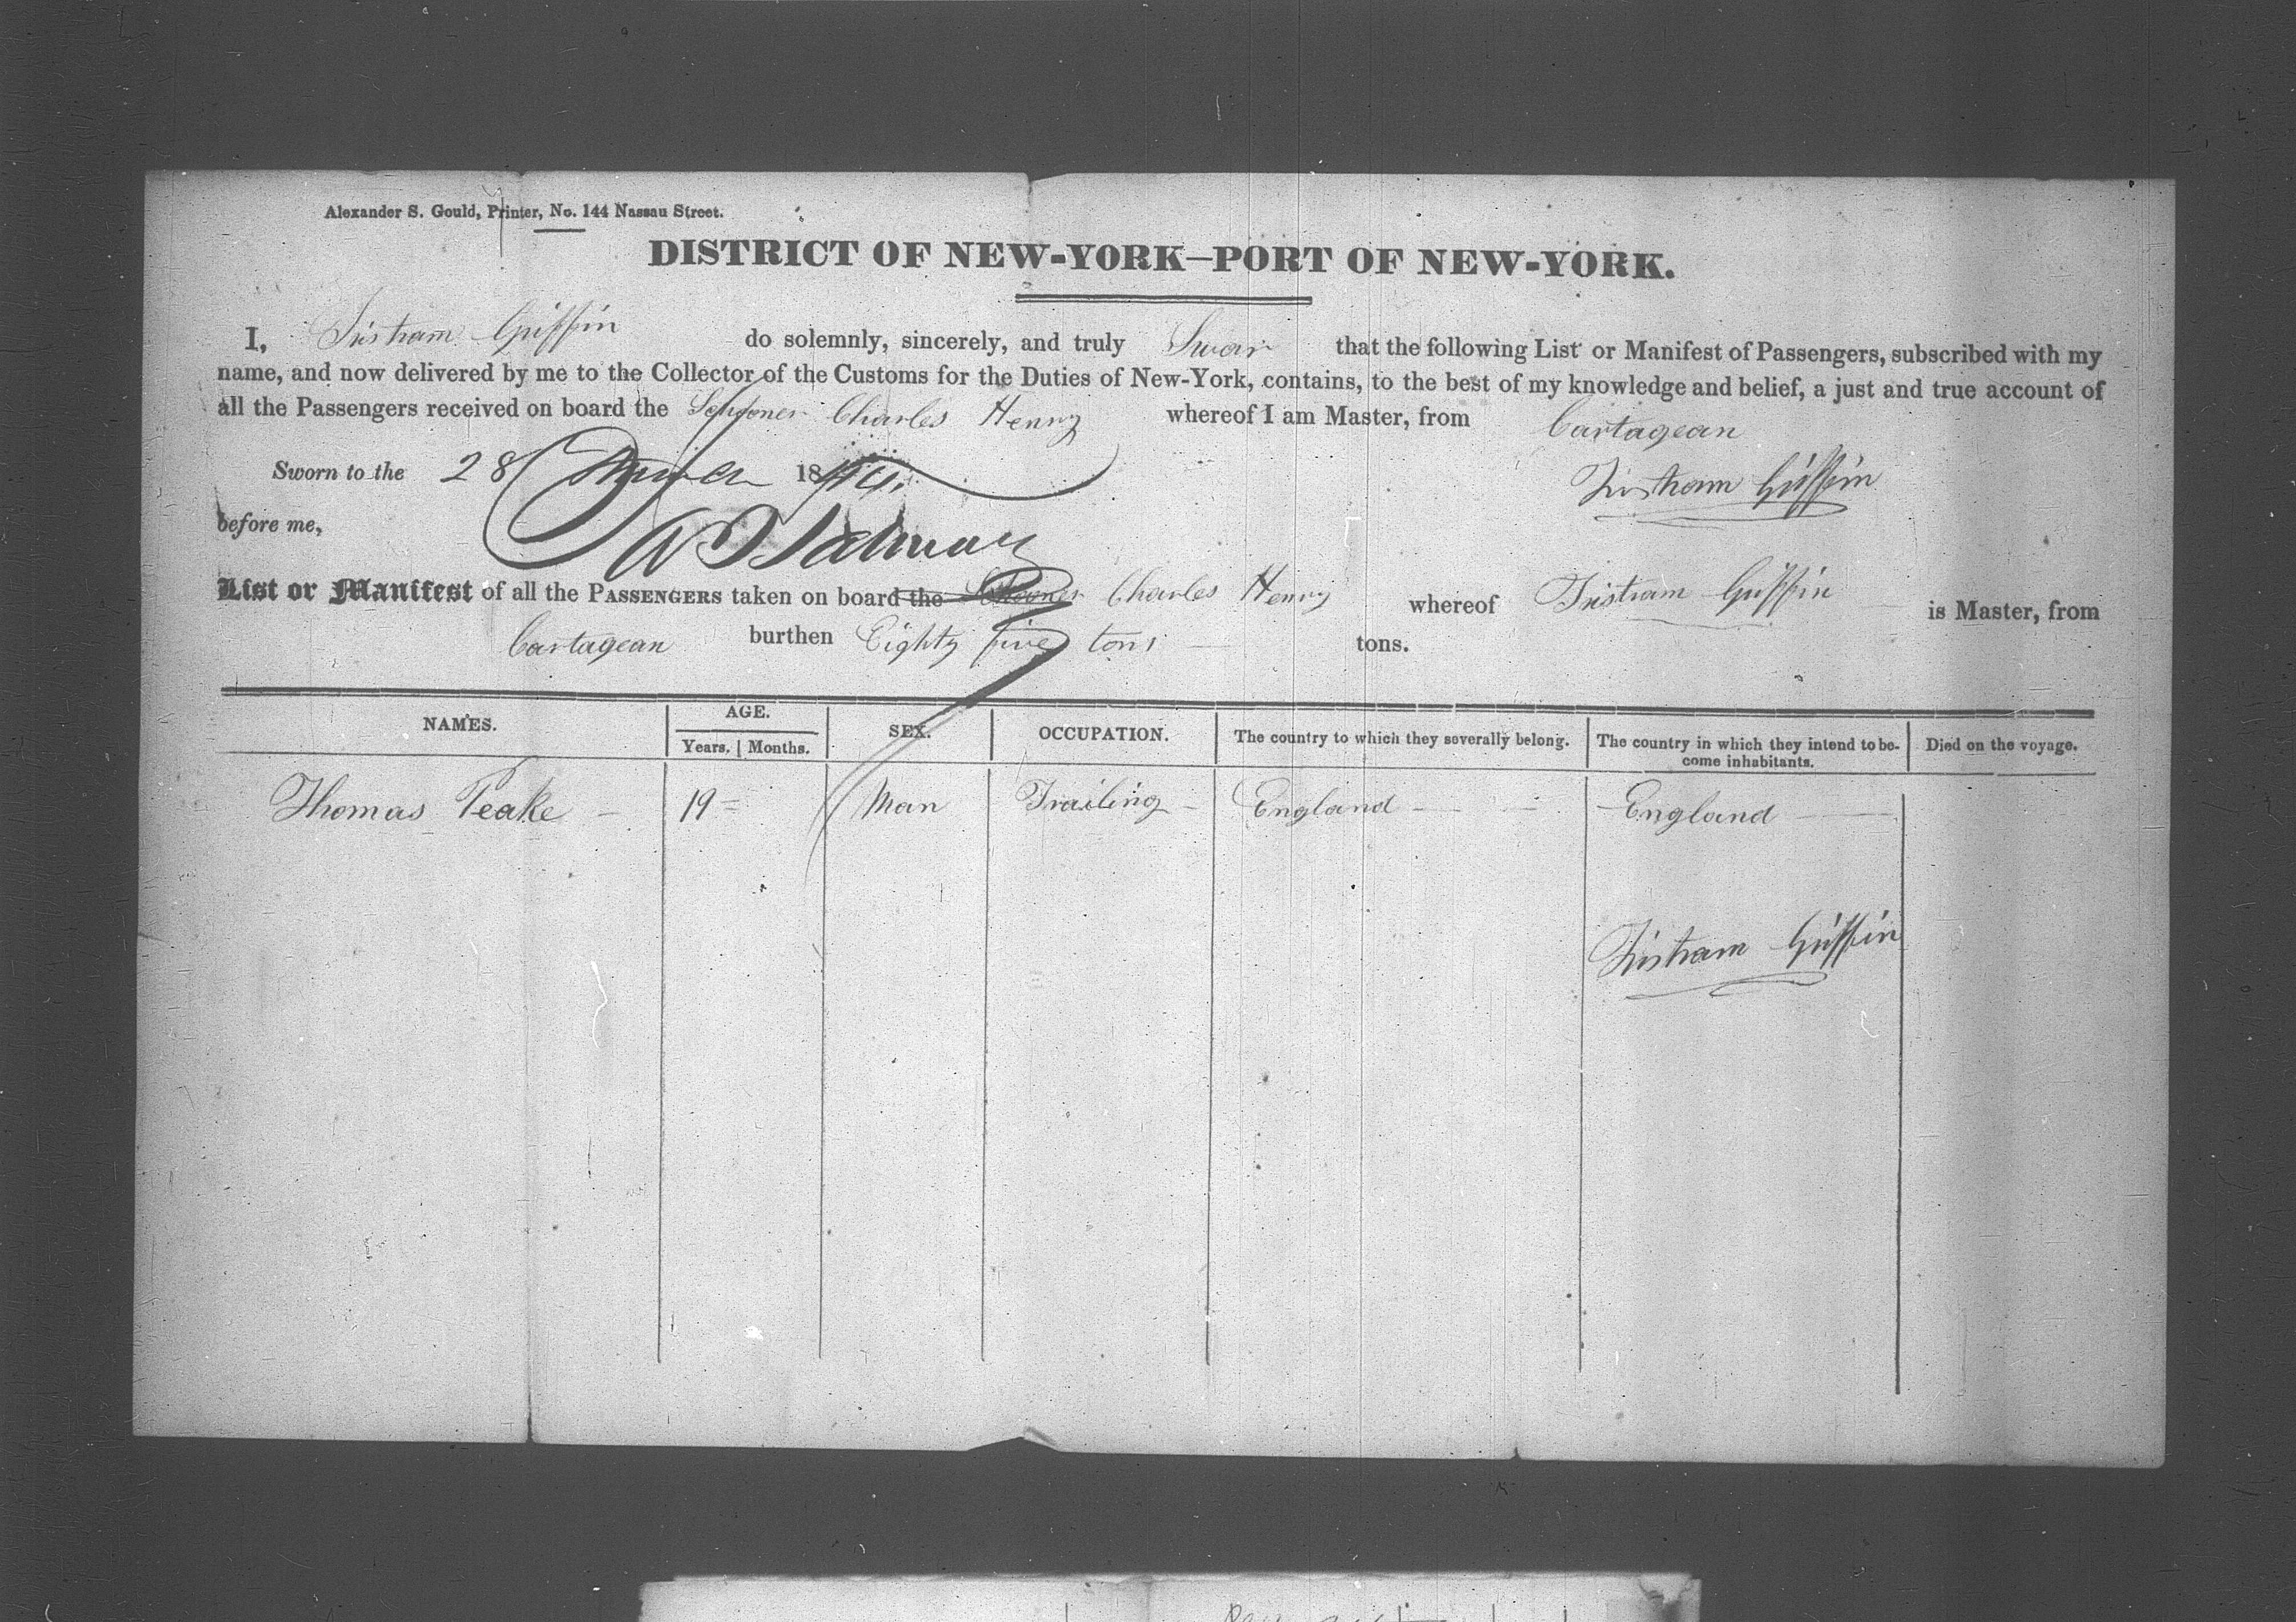 Alexander S. Gould, Printer, No. 144 Nassau Street.
DISTRICT OF NEW-YORK—PORT OF NEW-YORK.
I, Tristram Griffin do solemnly, sincerely, and truly Swar that the following List or Manifest of Passengers, subscribed with my
name, and now delivered by me to the Collector of the Customs for the Duties of New-York, contains, to the best of my knowledge and belief, a just and true account of
all the Passengers received on board the Schooner Charles Henry whereof I am Master, from Cartagean
Sworn to the 28 18
Tristram Griffin
before me,
List or Manifest of all the PASSENGERS taken on board the Schooner Charles Henry whereof Tristram Griffin is Master, from
Cartagean burthen Eighty five tons tons.
NAMES. AGE. SEX. OCCUPATION. The country to which they severally belong. The country in which they intend to be- Died on the voyage.
Years. Months. come inhabitants.
Thomas Peake 19 Man Traiding England England
Tristram Griffin